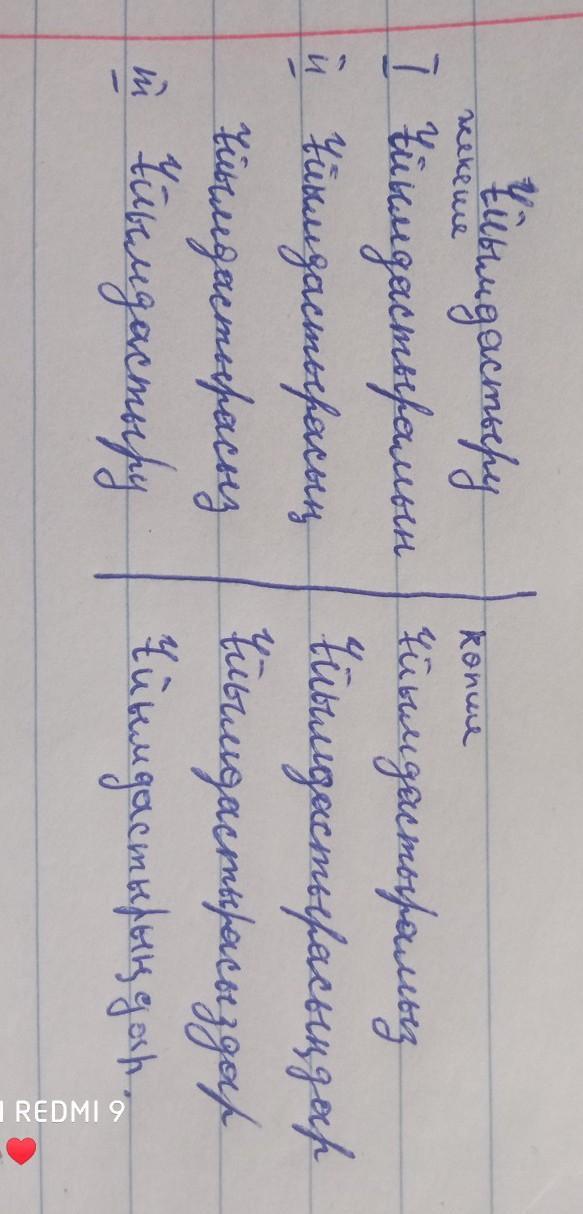 Ұйымдастыру
жекеше
көпше
I Ұйымдастырамын
Ұйымдастырамыз
II Ұйымдастырасың
Ұйымдастырасыңдар
Ұйымдастырасыз
Ұйымдастырасыздар
III Ұйымдастыру
Ұйымдастырыңдар.
REDMI 9